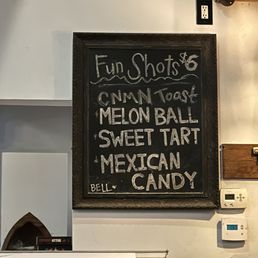 Fun Shots $6
CNMN Toast
MELON BALL
SWEET TART
MEXICAN
CANDY
BELL.